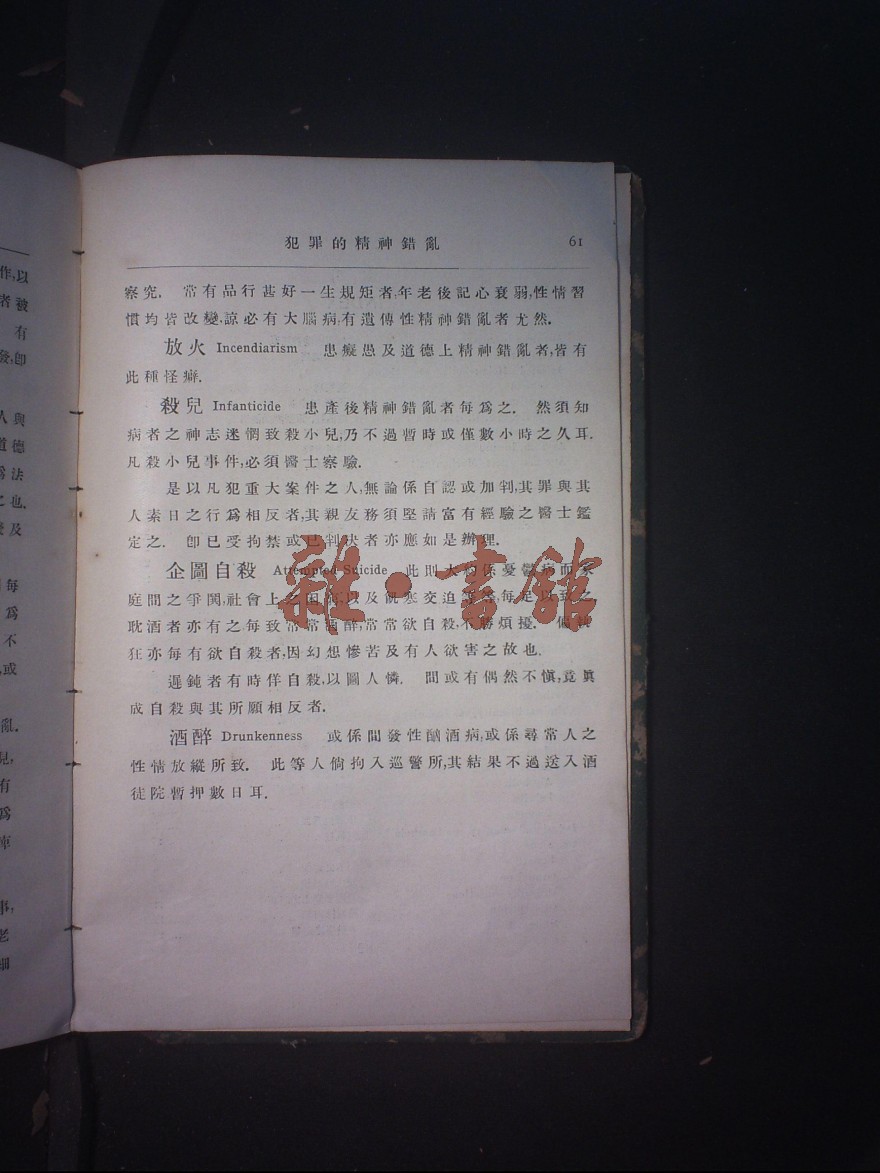 犯罪的精神錯亂 61
察究. 常有品行甚好一生規矩者,年老後記心衰弱,性情習
慣均皆改變,諒必有大腦病,有遺傳性精神錯亂者尤然.
放火 Incendiarism 患癡愚及道德上精神錯亂者,皆有
此種怪癖.
殺兒 Infanticide 患產後精神錯亂者每爲之. 然須知
病者之神志迷惘致殺小兒,乃不過暫時或僅數小時之久耳.
凡殺小兒事件,必須醫士察驗.
是以凡犯重大案件之人,無論係自認或加判,其罪與其
人素日之行爲相反者,其親友務須堅請富有經驗之醫士鑑
定之. 卽已受拘禁或已判決者亦應如是辦理.
企圖自殺 Attempted Suicide 此則大約係憂鬱病而家
庭間之爭鬨,社會上之困以及飢寒交迫等等,每足以致之
耽酒者亦有之每致常常酒醉,常常欲自殺,不勝煩擾.
狂亦每有欲自殺者,因幻想慘苦及有人欲害之故也.
遲鈍者有時佯自殺,以圖人憐. 間或有偶然不愼,竟眞
成自殺與其所願相反者.
酒醉 Drunkenness 或係間發性酗酒病,或係尋常人之
性情放縱所致. 此等人倘拘入巡警所,其結果不過送入酒
徒院暫押數日耳.
雜·書館
作,以
者被
有
發,卽
人與
道德
爲法
之也.
及
每
爲
不
或
亂.
見,
有
爲
事,
老